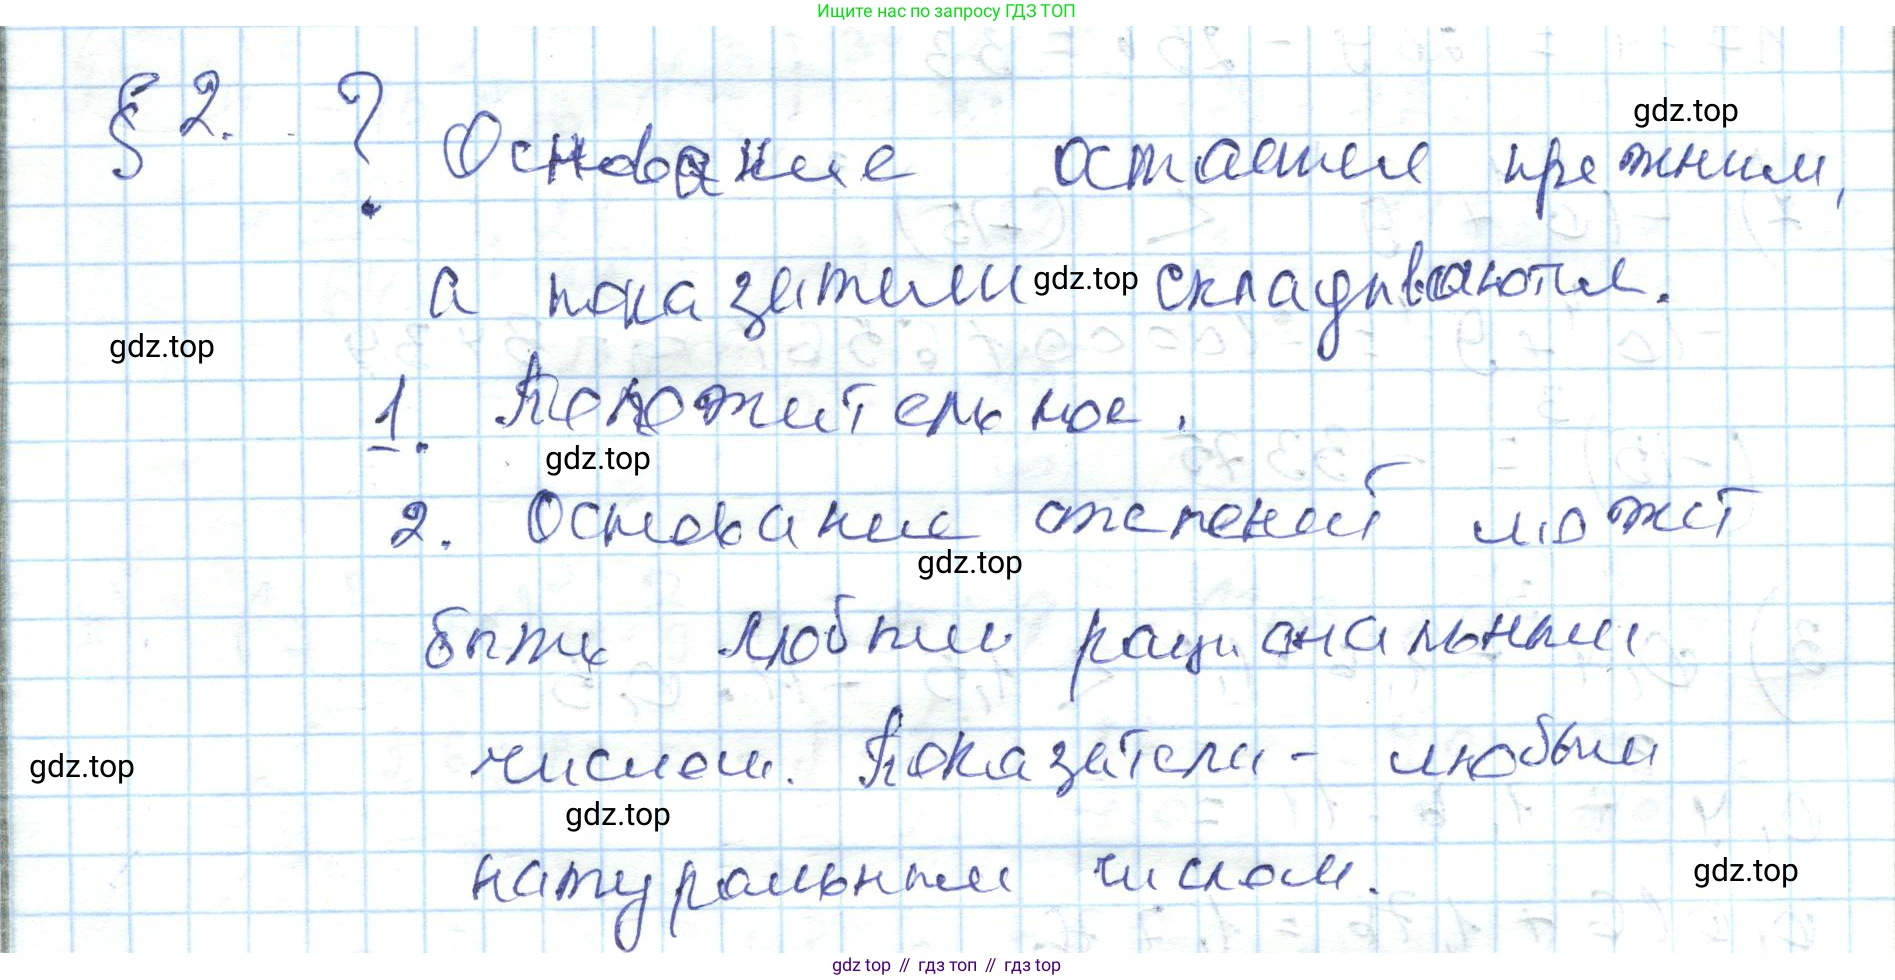 Ищите нас по запросу ГДЗ ТОП
gdz.top
§ 2. ? Основание остается прежним,
а показатели gdz.top складываются.
gdz.top
1. Положительное.
gdz.top
2. Основание степеней может
gdz.top
быть любым рациональным
числом. Показатели - любым
gdz.top
gdz.top
натуральным числом.
gdz.top
gdz top // гдз топ // gdz top